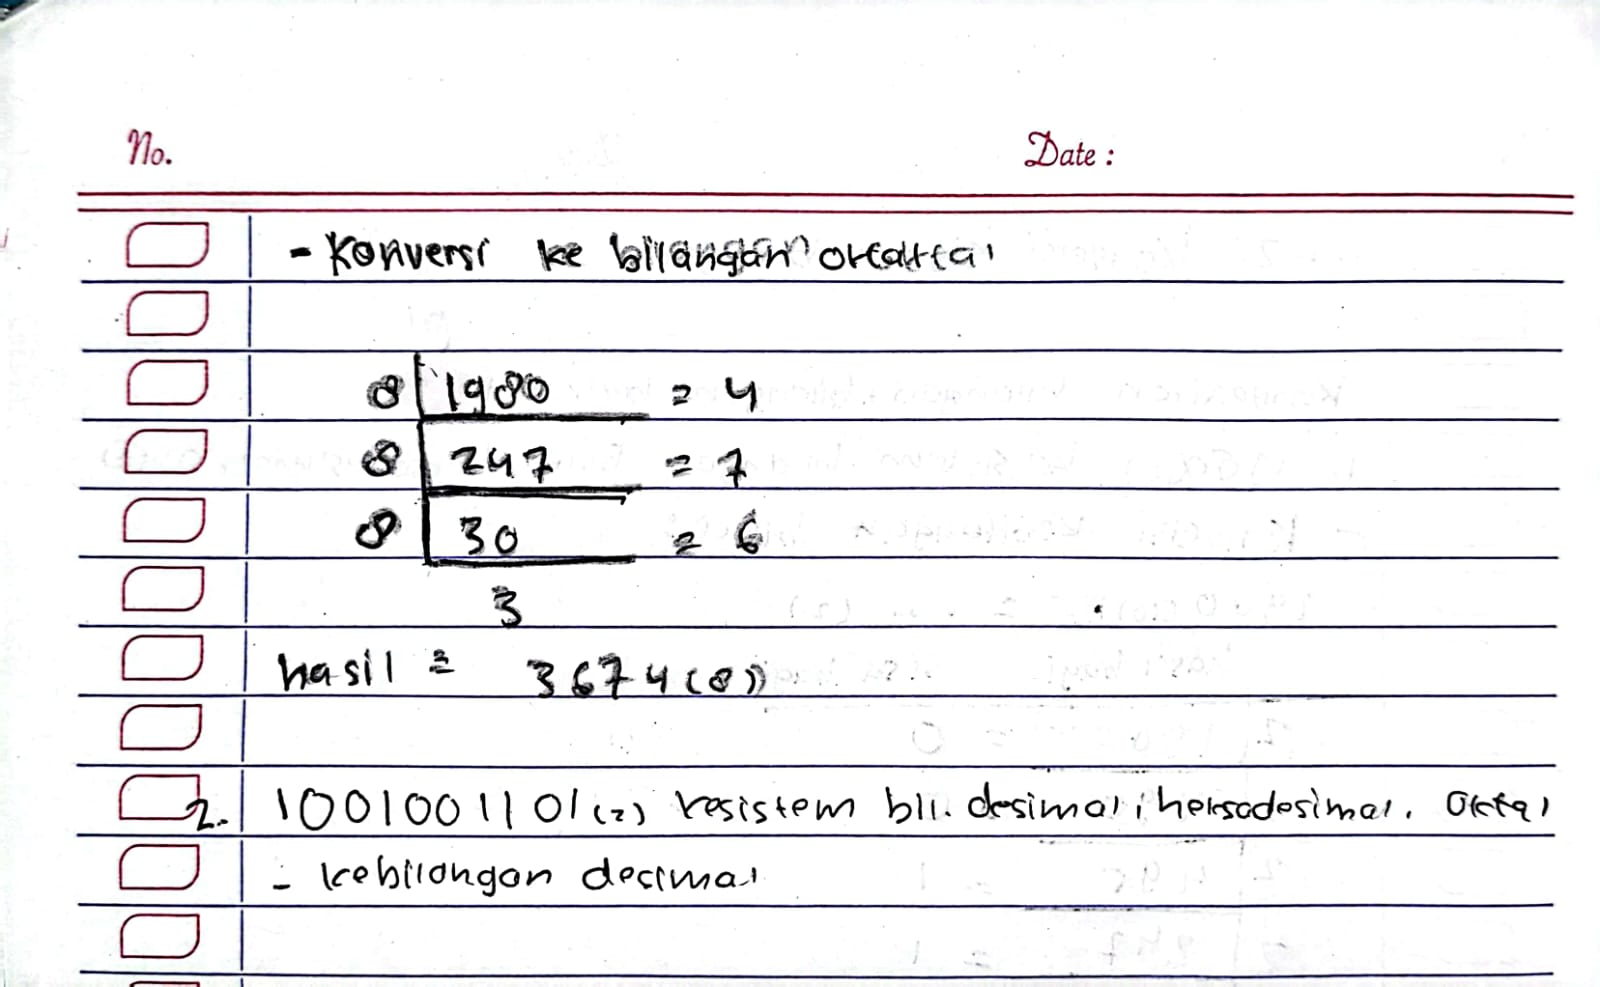 No. Date :
- Konversi ke bilangan oktaltal
8 1980 = 4
8 247 = 7
8 30 = 6
3
hasil = 3674(8)
2. 1001001101(2) kesistem bil. desimal, heksadesimal. Oktal
- kebilangan decimal